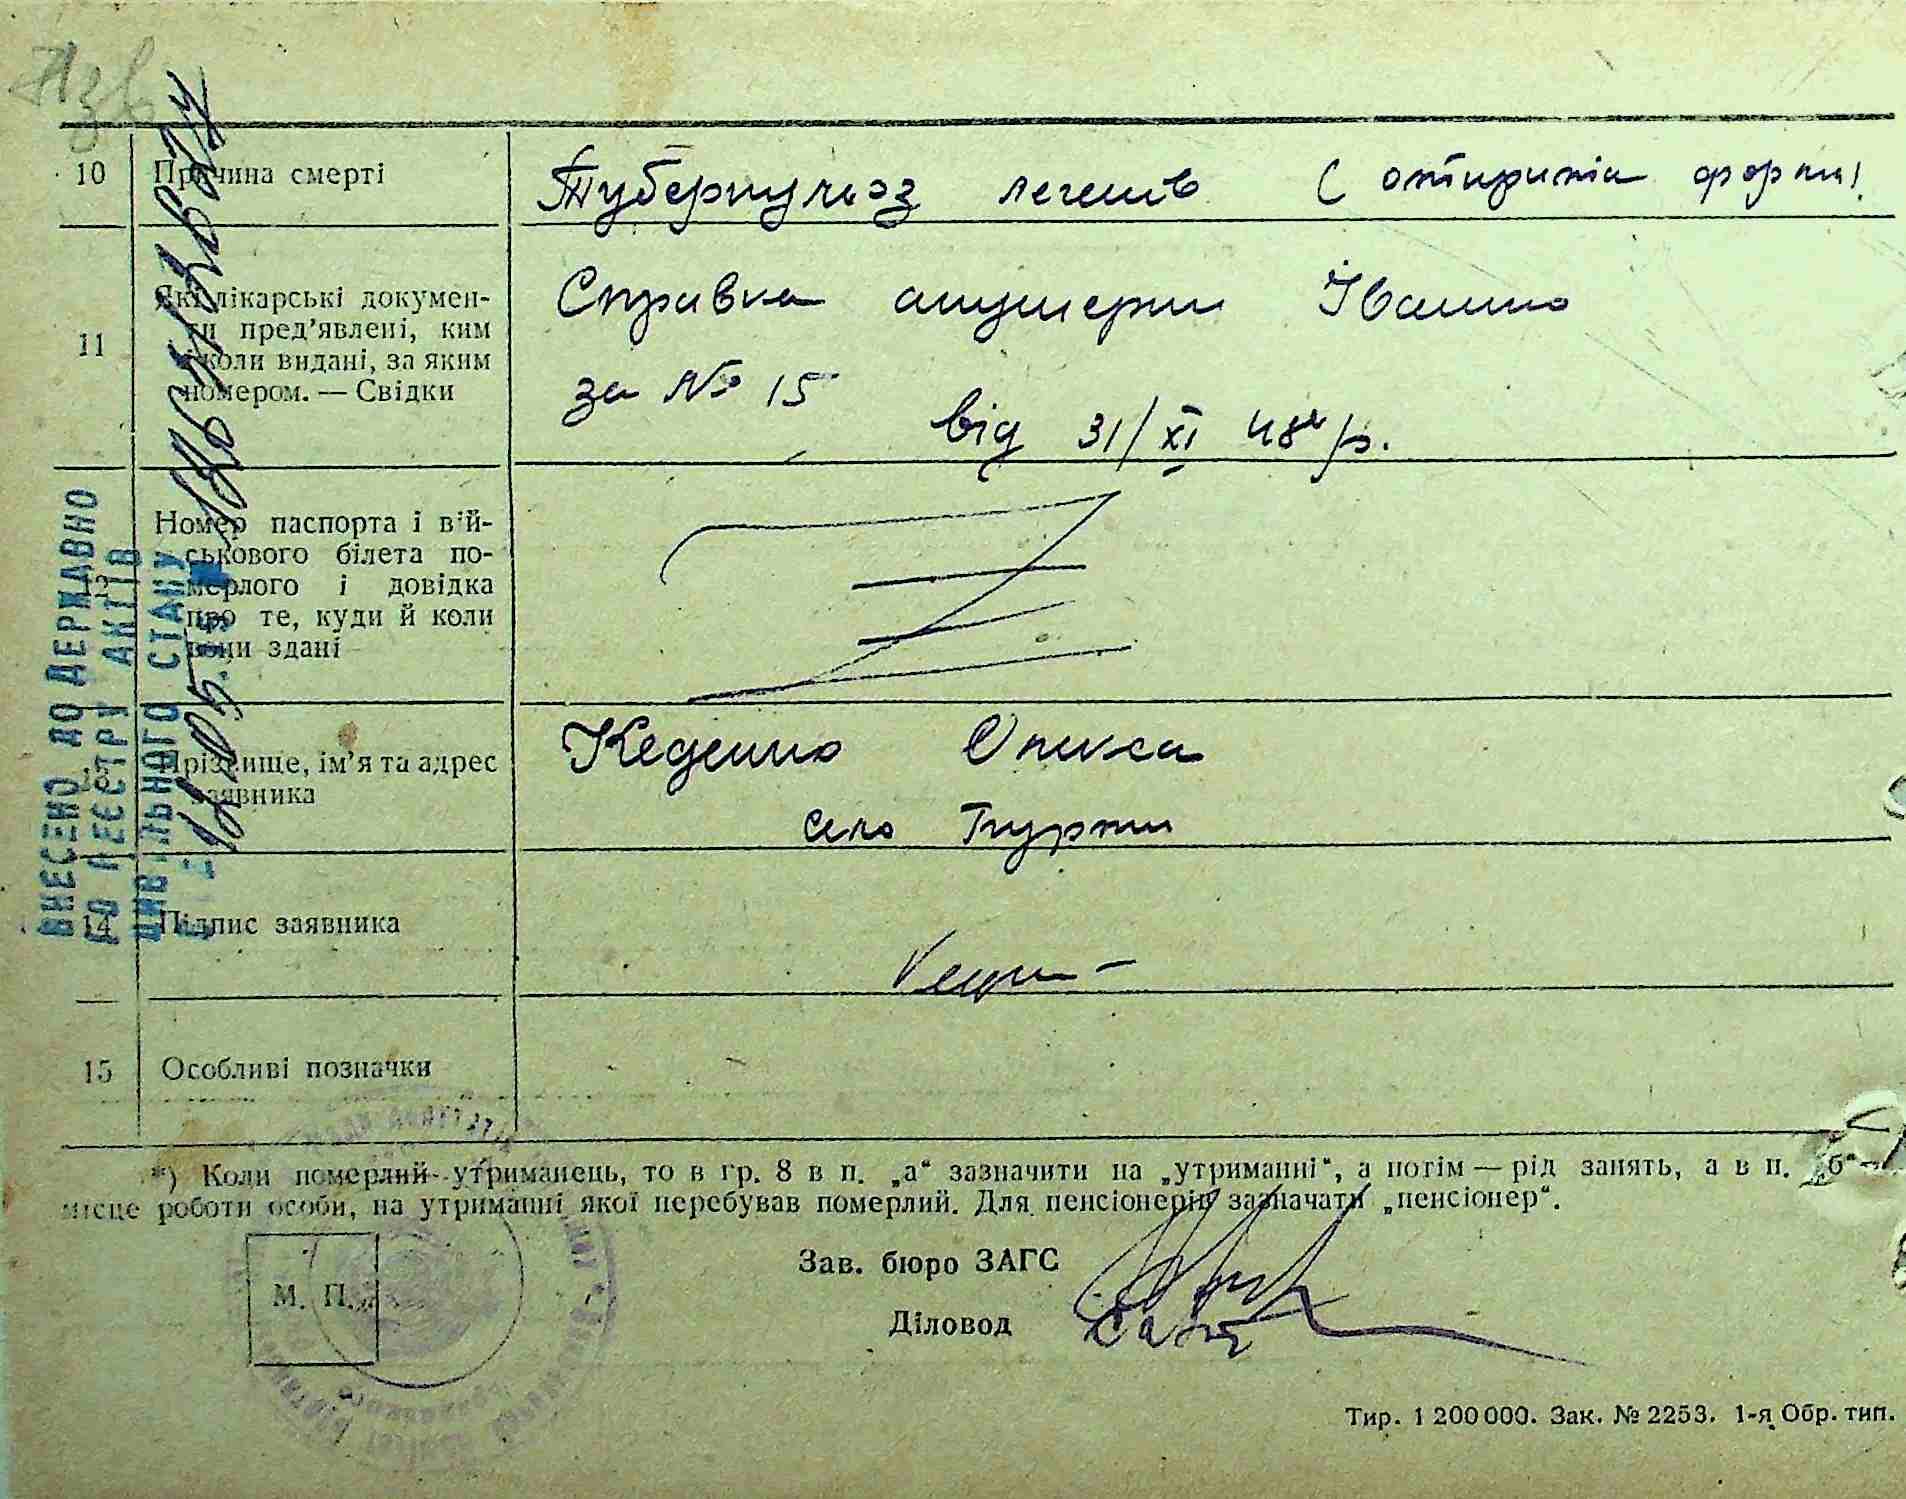 10 Причина смерті
Туберкульоз легенів (открита форма)
11 Які лікарські докумен-
ти пред’явлені, ким
і коли видані, за яким
номером. — Свідки
Справка акушерки
за № 15
від 31/XI 48 /р.
12 Номер паспорта і вій-
ськового білета по-
мерлого і довідка
про те, куди й коли
вони здані
13 Прізвище, ім’я та адрес
заявника
село
14 Підпис заявника
15 Особливі позначки
ВНЕСЕНО ДО ДЕРЖАВНО
ГО РЕЄСТРУ АКТІВ
ЦИВІЛЬНОГО СТАНУ
*) Коли померлий утриманець, то в гр. 8 в п. „а“ зазначити на „утриманні“, а потім — рід занять, а в п. „б“ —
місце роботи особи, на утриманні якої перебував померлий. Для пенсіонерів зазначати „пенсіонер“.
М. П.
Зав. бюро ЗАГС
Діловод
Тир. 1 200 000. Зак. № 2253. 1-я Обр. тип.